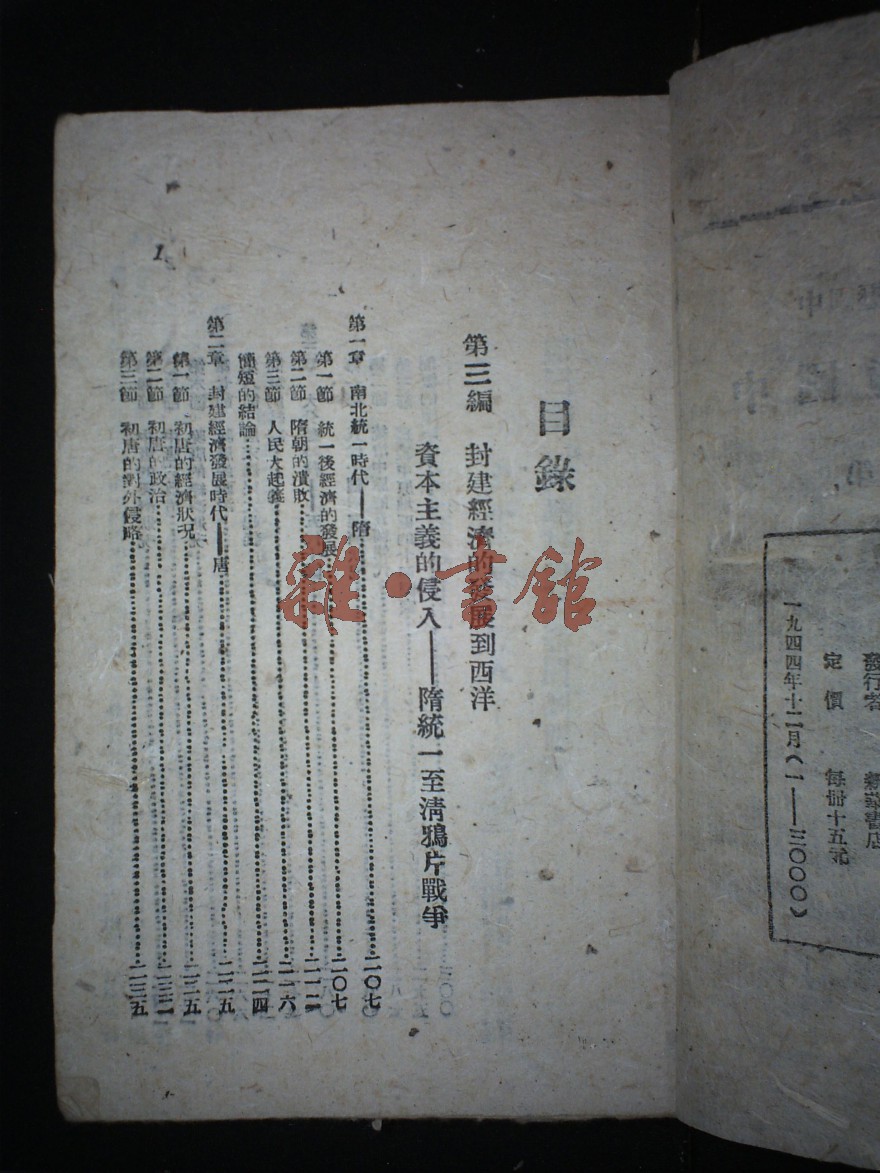 發行者 新華書店
定價 每冊十五元
一九四四年十二月（一——三〇〇〇）
目錄
第三編 封建經濟的發展到西洋
資本主義的侵入——隋統一至清鴉片戰爭
第一章 南北統一時代——隋……二〇七
第一節 統一後經濟的發展……二〇七
第二節 隋朝的潰敗……二一二
第三節 人民大起義……二一六
簡短的結論……二二四
第二章 封建經濟發展時代——唐……二二五
第一節 初唐的經濟狀況……二二五
第二節 初唐的政治……二三二
第三節 初唐的對外侵略……二三五
1
雜·書館